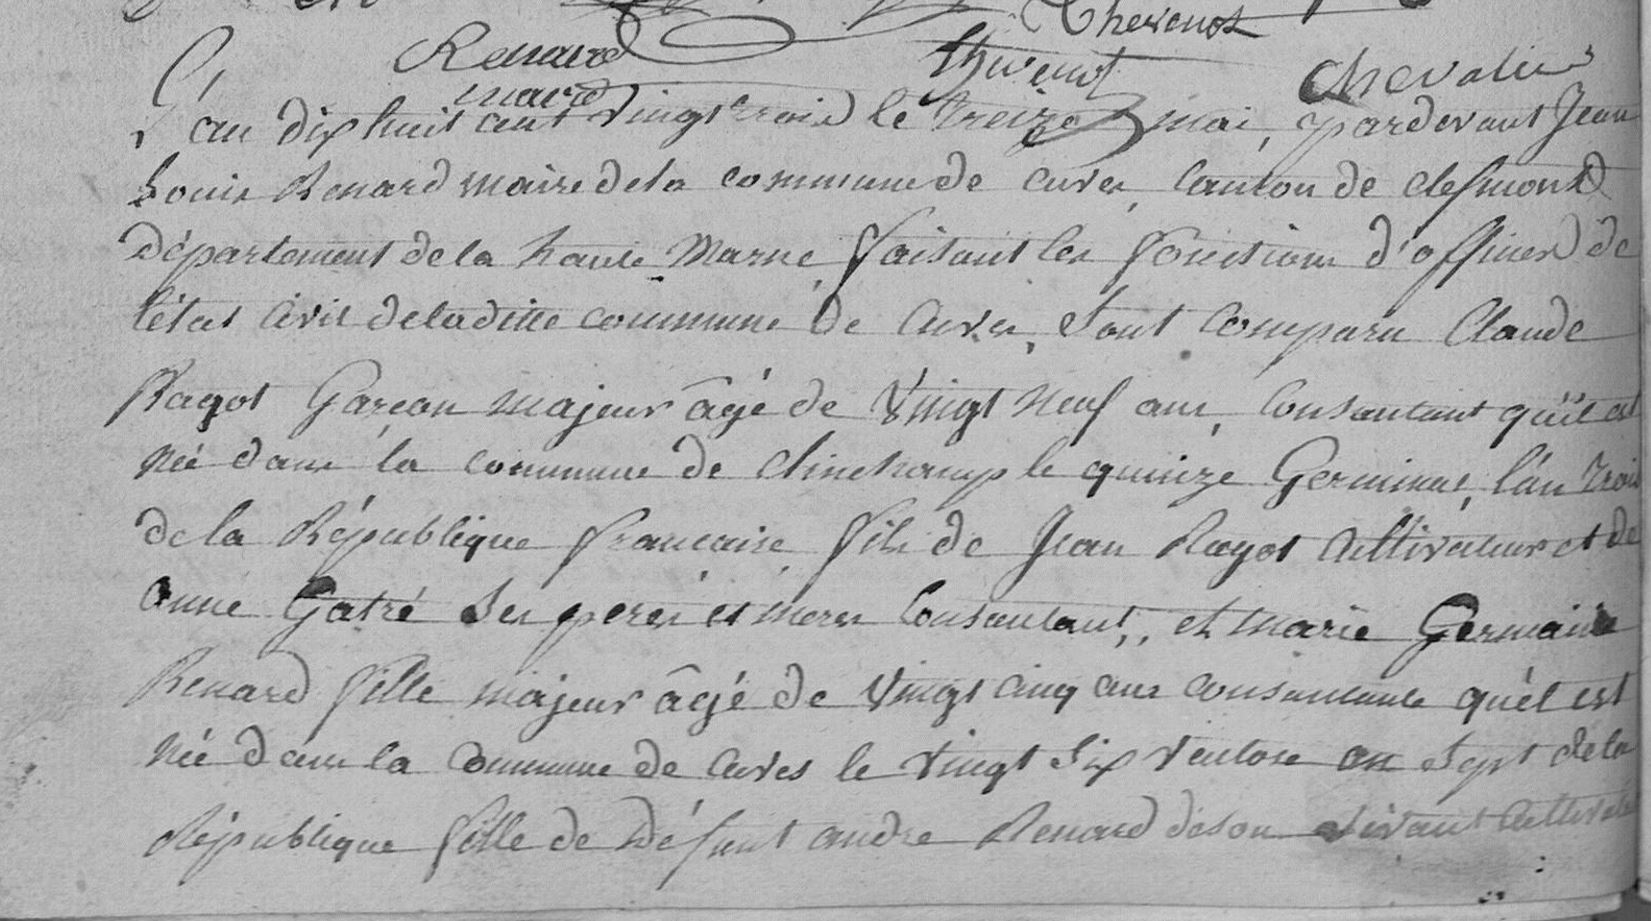 Thevenot
Renard Thevenot Chevalier
maire
L'an dix huit cent vingt trois le treize mai, pardevant Jean
Louis Renard maire de la commune de cuves, canton de clefmont
Département de la haute Marne, faisant les fonctions d'officier de
l'état civil de la ditte commune de Cuves, sont comparu Claude
Ragot Garçon majeur âgé de vingt neuf ans, Consantant qu'il est
née dans la commune de clinchamp le quinze Germinal, l'an trois
de la République francaise, fils de Jean Ragot Cultivateur et de
anne Gatré ses peres et meres Consantant,, et marie Germaine
Renard fille majeur âgé de vingt cinq ans consantante qu'el est
née dans la Commune de Cuves le vingt six ventose an sept de la
République fille de Défunt andre Renard de son vivant Cultivat